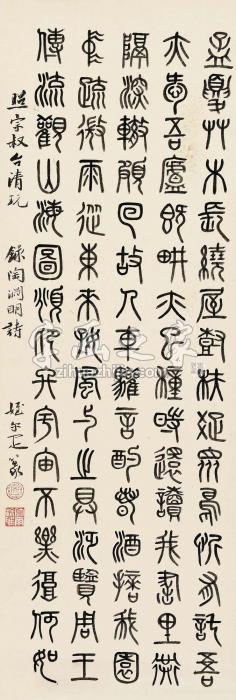 孟夏艸木長繞屋樹扶疏眾鳥欣有託吾
亦愛吾廬既畊亦已種時還讀我書巷
隔深轍頗回故人車言酌春酒摘我園
中疏微雨從東來好風与之具汎覽周王
傳流觀山海圖頫仰終宇宙不樂復何如
照宇叔台清玩 錄陶淵明詩
姪尔疋篆